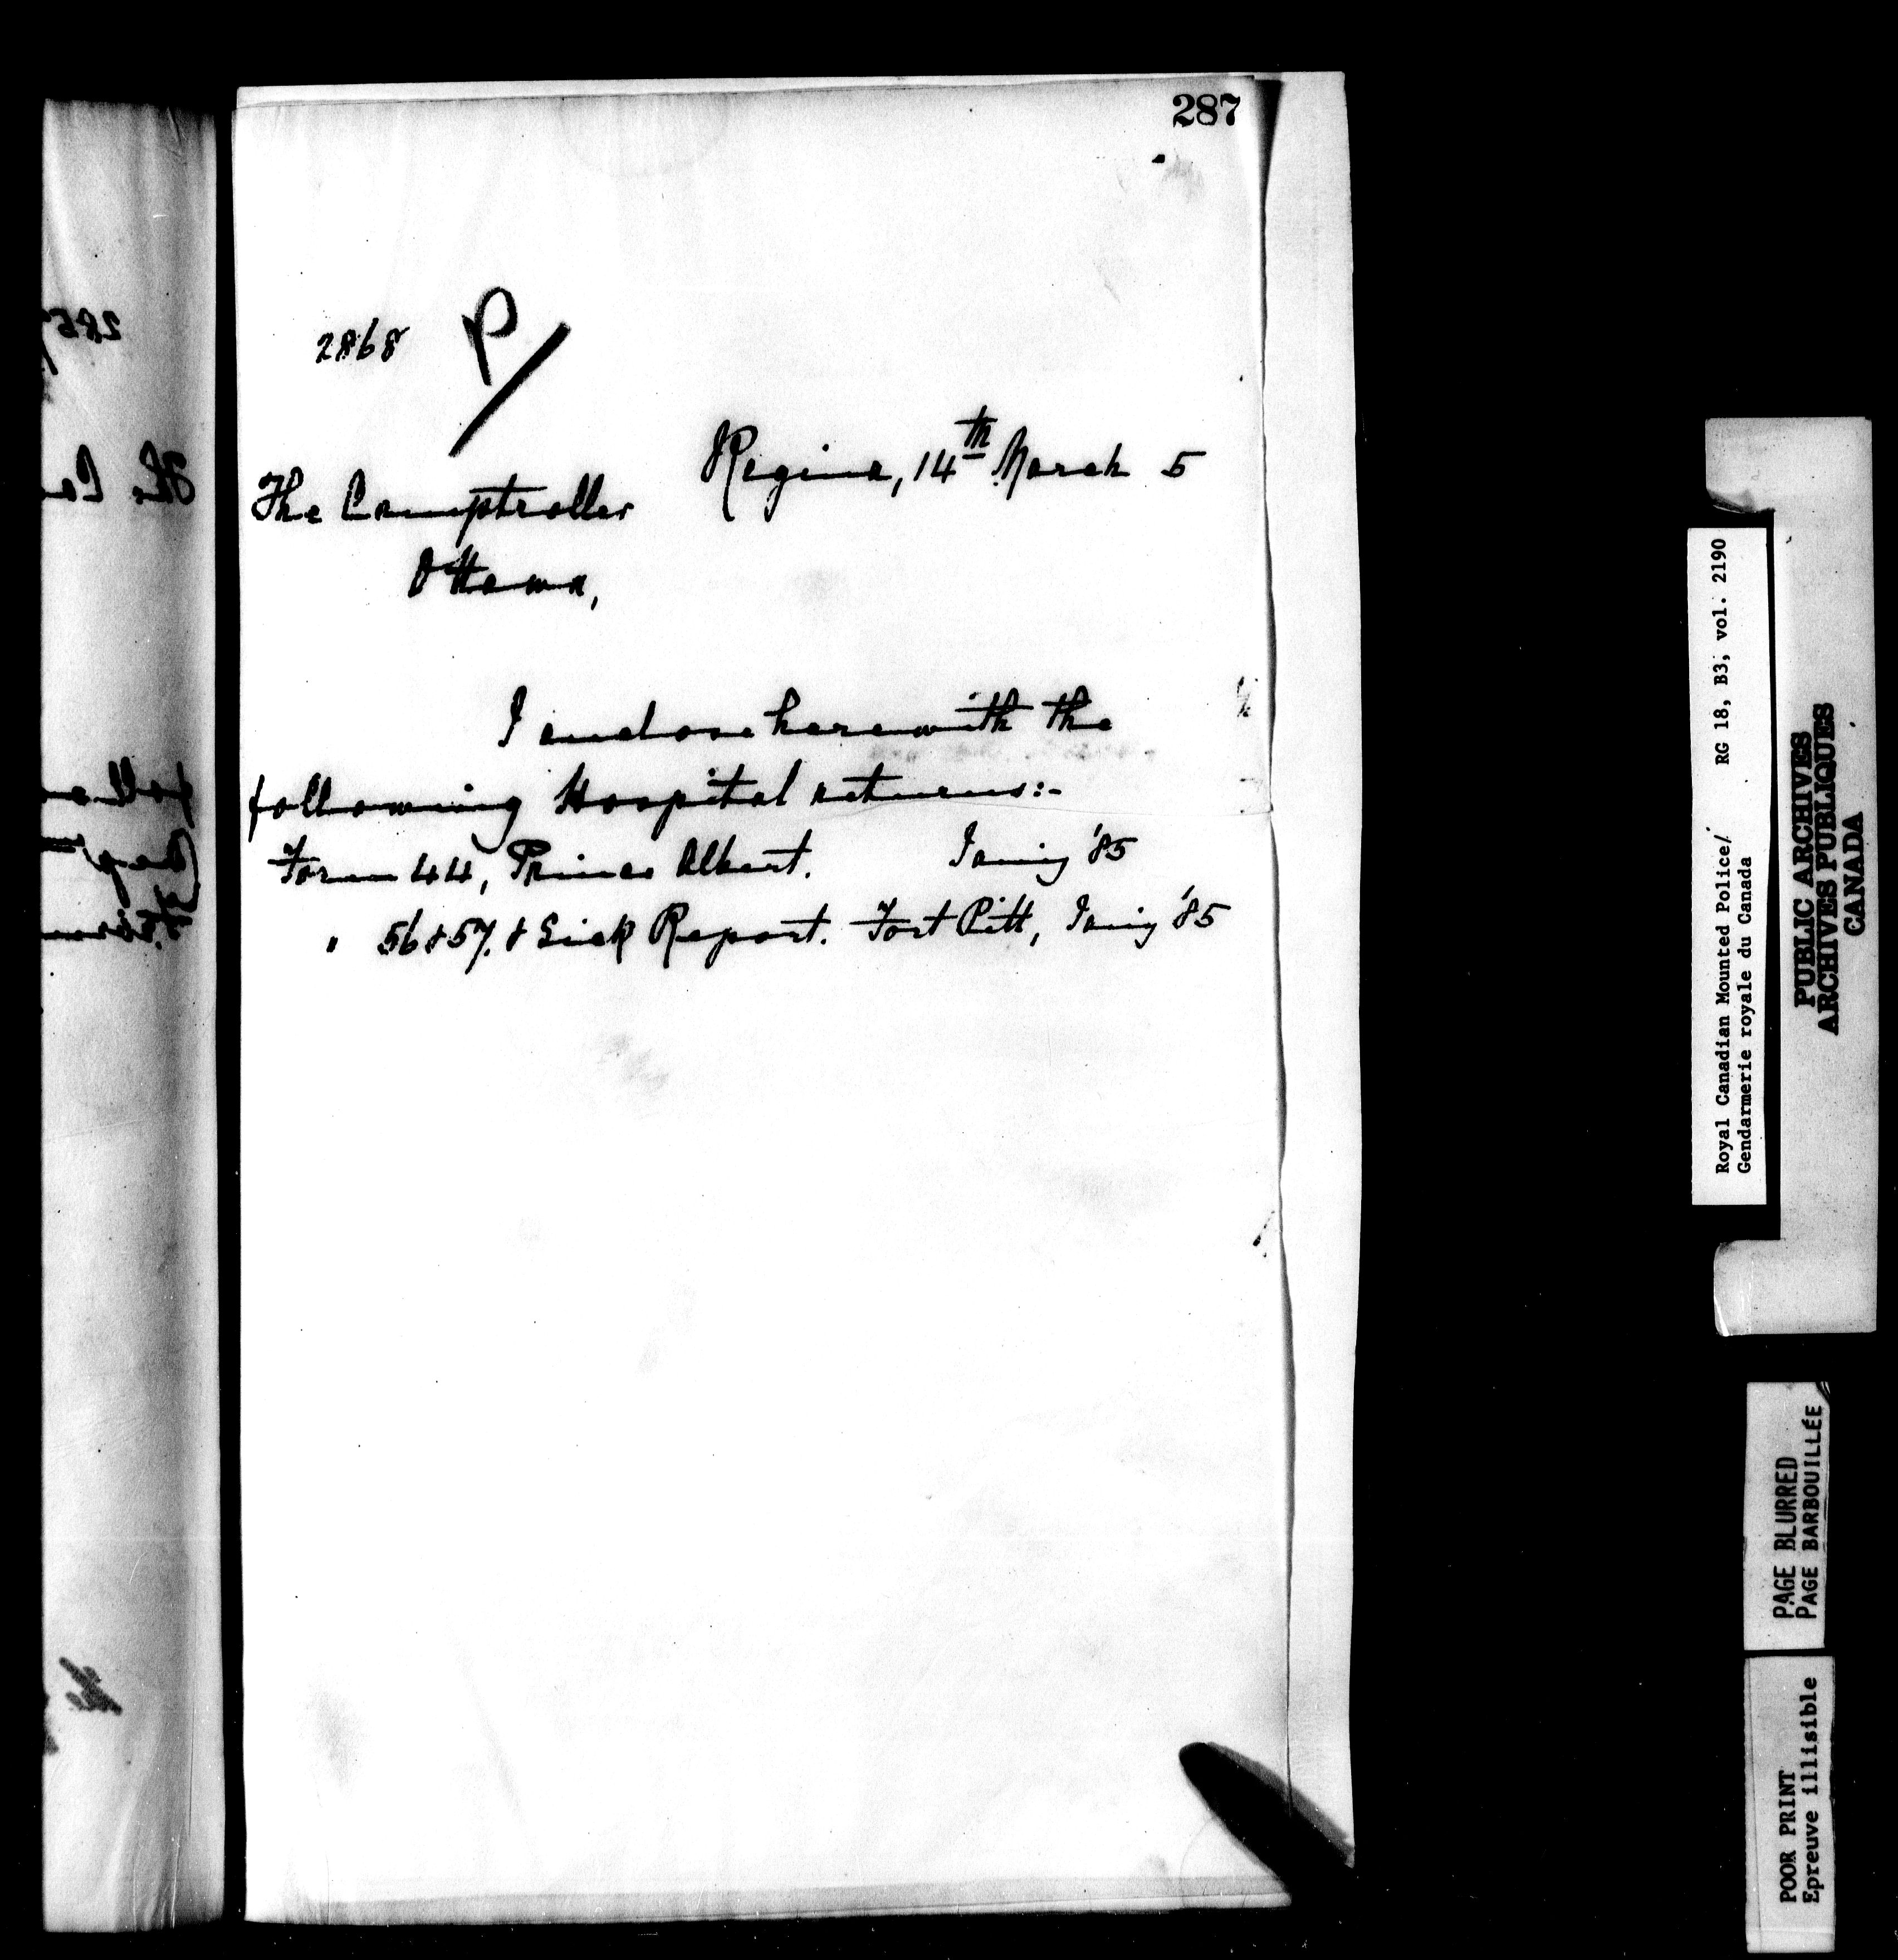 287
2868 P/
Regina, 14th March 5
The Comptroller
Ottawa,
I enclose herewith the
following Hospital returns:-
Form 44, Prince Albert. Jany '85
" 56 & 57. & Sick Report. Fort Pitt, Jany '85
Royal Canadian Mounted Police/ RG 18, B3, vol. 2190
Gendarmerie royale du Canada
PUBLIC ARCHIVES
ARCHIVES PUBLIQUES
CANADA
PAGE BLURRED
PAGE BARBOUILLÉE
POOR PRINT
Epreuve illisible